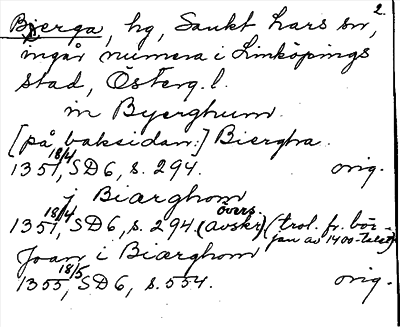 2.
Bjerga, hg, Sankt Lars sn,
ingår numera i Linköpings
stad, Österg. l.
in Byerghum.
[på baksidan:] Biergha.
1351 18/4, SD 6, s. 294. orig.
j Biærghom
1351 18/4, SD 6, s. 294 (avskr. övers.) (trol. fr. bör-
jan av 1400-talet)
Joan i Biærghom
1355 18/5, SD 6, s. 554. orig.